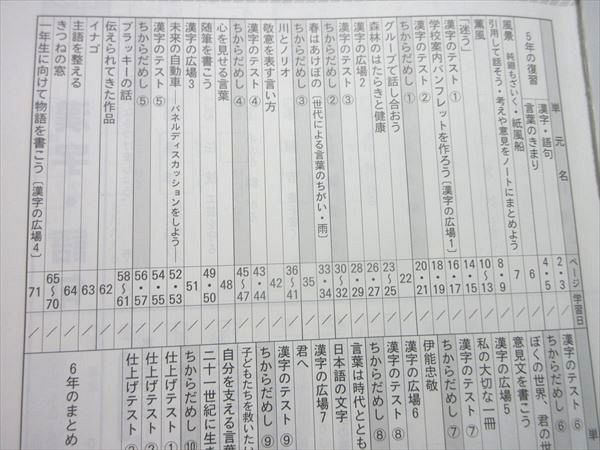 単元名 ページ 学習日
5年の復習
漢字・語句 2・3 ／
言葉のきまり 4・5 ／
風景 純銀もざいく・紙風船 6 ／
引用して話そう・考えや意見をノートにまとめよう 7 ／
薫風 8・9 ／
「迷う」 10〜13 ／
漢字のテスト① 14・15 ／
学校案内パンフレットを作ろう〔漢字の広場1〕 16・17 ／
漢字のテスト② 18・19 ／
ちからだめし① 20・21 ／
グループで話し合おう 22 ／
森林のはたらきと健康 23〜25 ／
漢字の広場2 26・27 ／
漢字のテスト③ 28・29 ／
ちからだめし② 30〜32 ／
春はあけぼの〔世代による言葉のちがい・雨〕 33・34 ／
ちからだめし③ 35 ／
川とノリオ 36〜41 ／
敬意を表す言い方 42 ／
漢字のテスト④ 43・44 ／
ちからだめし④ 45〜47 ／
心を見せる言葉 48 ／
随筆を書こう 49・50 ／
漢字の広場3 51 ／
未来の自動車 パネルディスカッションをしよう— 52・53 ／
漢字のテスト⑤ 54・55 ／
ちからだめし⑤ 56・57 ／
ブラッキーの話 58〜61 ／
伝えられてきた作品 62 ／
イナゴ 63 ／
主語を整える 64 ／
きつねの窓 65〜70 ／
一年生に向けて物語を書こう〔漢字の広場4〕 71 ／
単
漢字のテスト⑥
ちからだめし⑥
ぼくの世界、君の世
意見文を書こう
漢字の広場5
私の大切な一冊
漢字のテスト⑦
ちからだめし⑦
伊能忠敬
漢字の広場6
漢字のテスト⑧
ちからだめし⑧
言葉は時代ととも
日本語の文字
漢字の広場7
君へ
漢字のテスト⑨
ちからだめし⑨
子どもたちを救いたい
自分を支える言葉
二十一世紀に生き
ちからだめし⑩
仕上げテスト①
仕上げテスト②
仕上げテスト
6年のまとめ